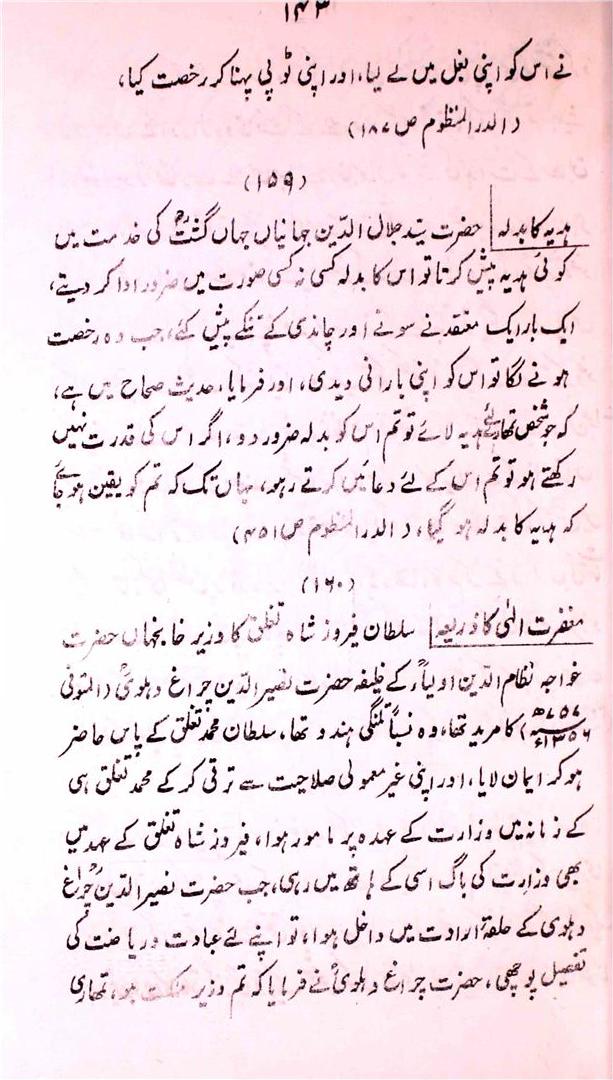 ۱۴۳
نے اس کو اپنی بغل میں لے لیا، اور اپنی ٹوپی پہنا کر رخصت کیا،
(الدر المنظوم ص ۱۸۷)
(۱۵۹)
ہدیہ کا بدلہ حضرت سید جلال الدین جہانیاں جہاں گشتؒ کی خدمت میں
کوئی ہدیہ پیش کرتا تو اس کا بدلہ کسی نہ کسی صورت میں ضرور ادا کر دیتے،
ایک بار ایک معتقد نے سونے اور چاندی کے تنکے پیش کئے، جب وہ رخصت
ہونے لگا تو اس کو اپنی بارانی دیدی، اور فرمایا، حدیث صحاح میں ہے،
کہ جو شخص تمھارے لئے ہدیہ لائے تو تم اس کو بدلہ ضرور دو، اگر اس کی قدرت نہیں
رکھتے ہو تو تم اس کے لئے دعائیں کرتے رہو، یہاں تک کہ تم کو یقین ہو جائے
کہ ہدیہ کا بدلہ ہو گیا، (الدر المنظوم ص ۴۵۱)
(۱۶۰)
مغفرت الٰہی کا ذریعہ سلطان فیروز شاہ تغلق کا وزیر خانجہاں حضرت
خواجہ نظام الدین اولیاؒ کے خلیفہ حضرت نصیر الدین چراغ دہلویؒ (المتوفی
۷۵۷ھ ۱۳۵۶ء) کا مرید تھا، وہ نسباً تلنگی ہندو تھا، سلطان محمد تغلق کے پاس حاضر
ہو کر ایمان لایا، اور اپنی غیر معمولی صلاحیت سے ترقی کر کے محمد تغلق ہی
کے زمانہ میں وزارت کے عہدہ پر مامور ہوا، فیروز شاہ تغلق کے عہد میں
بھی وزارت کی باگ اسی کے ہاتھ میں رہی، جب حضرت نصیر الدین چراغؒ
دہلوی کے حلقۂ ارادت میں داخل ہوا، تو اپنے لئے عبادت و ریاضت کی
تفصیل پوچھی، حضرت چراغ دہلویؒ نے فرمایا کہ تم وزیر مملکت ہو، تمھاری